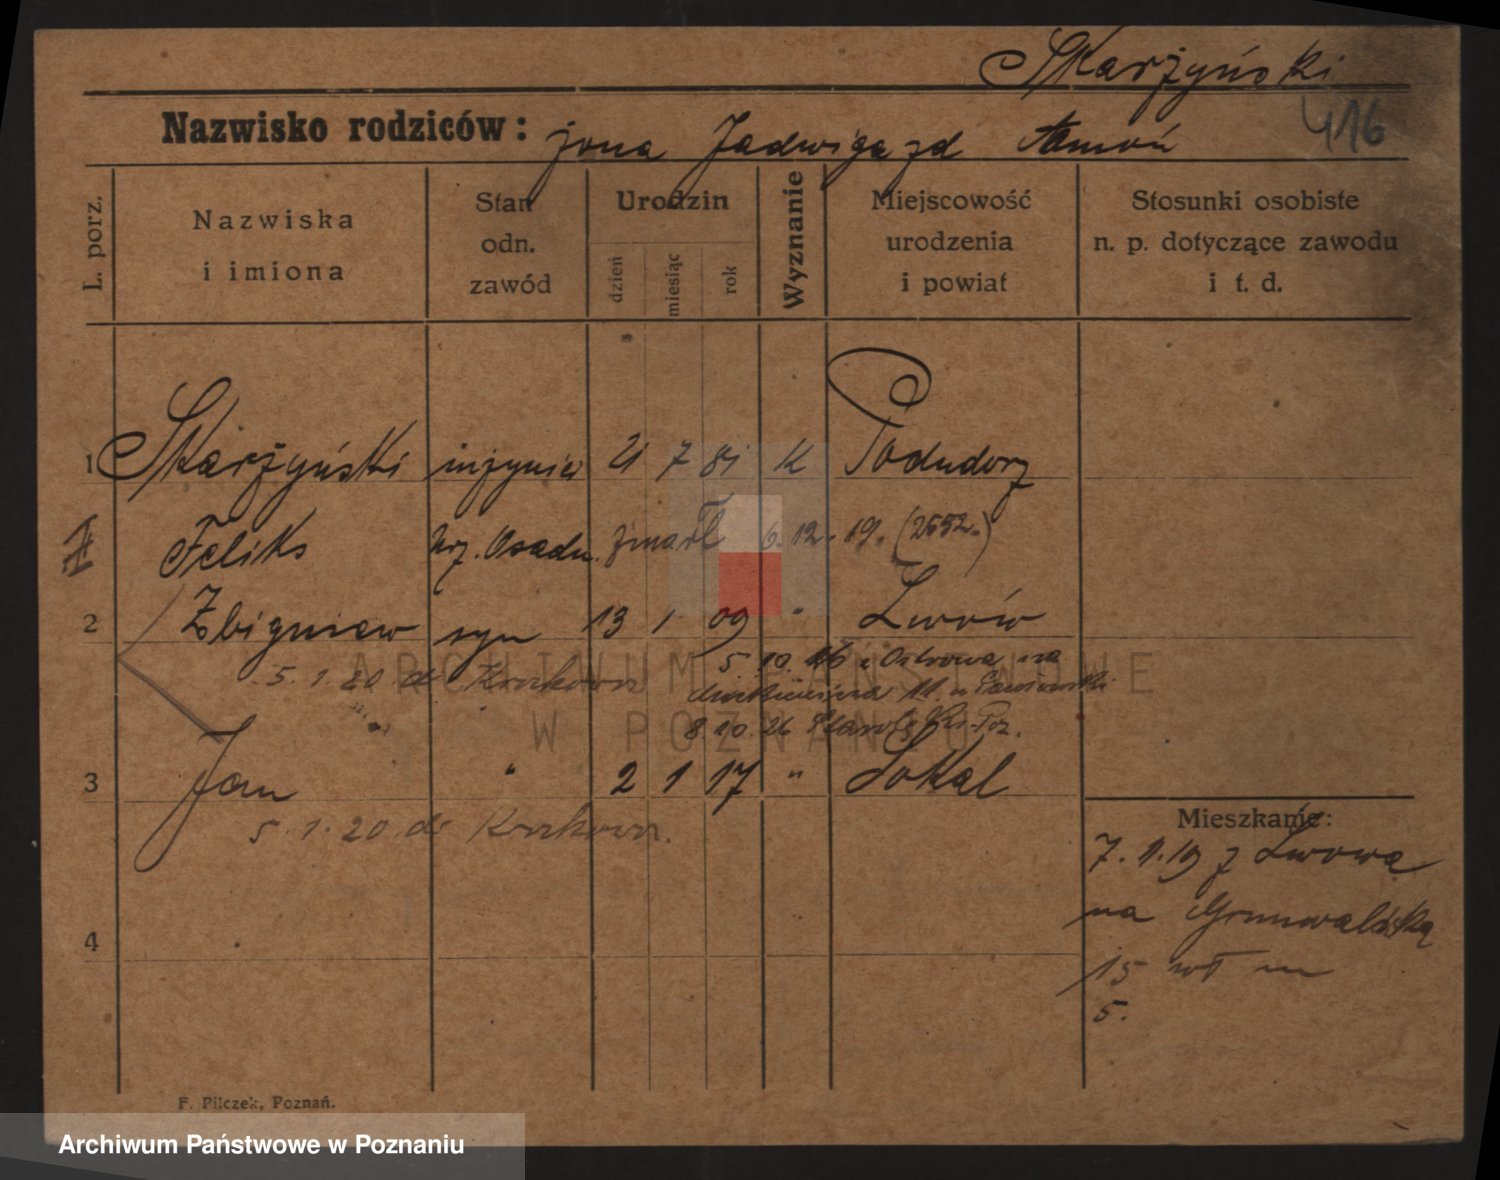 Skarżyński
Nazwisko rodziców: żona Jadwiga zd
416
L. porz.
Nazwiska
i imiona
Stan
odn.
zawód
Urodzin
dzień
miesiąc
rok
Wyznanie
Miejscowość
urodzenia
i powiat
Stosunki osobiste
n. p. dotyczące zawodu
i t. d.
1 Skarżyński 21 7 81 K
Feliks Urz. Osadn. zmarł 6.12.19. (2652.)
2 Zbigniew syn 13 1 09 " Lwów
5.1.20 do Krakowa 5 10 26 z Ostrowa na
8 10 26
ARCHIWUM PAŃSTWOWE
W POZNANIU
3 Jan " 2 1 17 " Sokal
5.1.20 do Krakowa.
Mieszkanie:
7.1.19 z Lwowa
na Grunwaldzką
15
5.
4
F. Pilczek, Poznań.
Archiwum Państwowe w Poznaniu